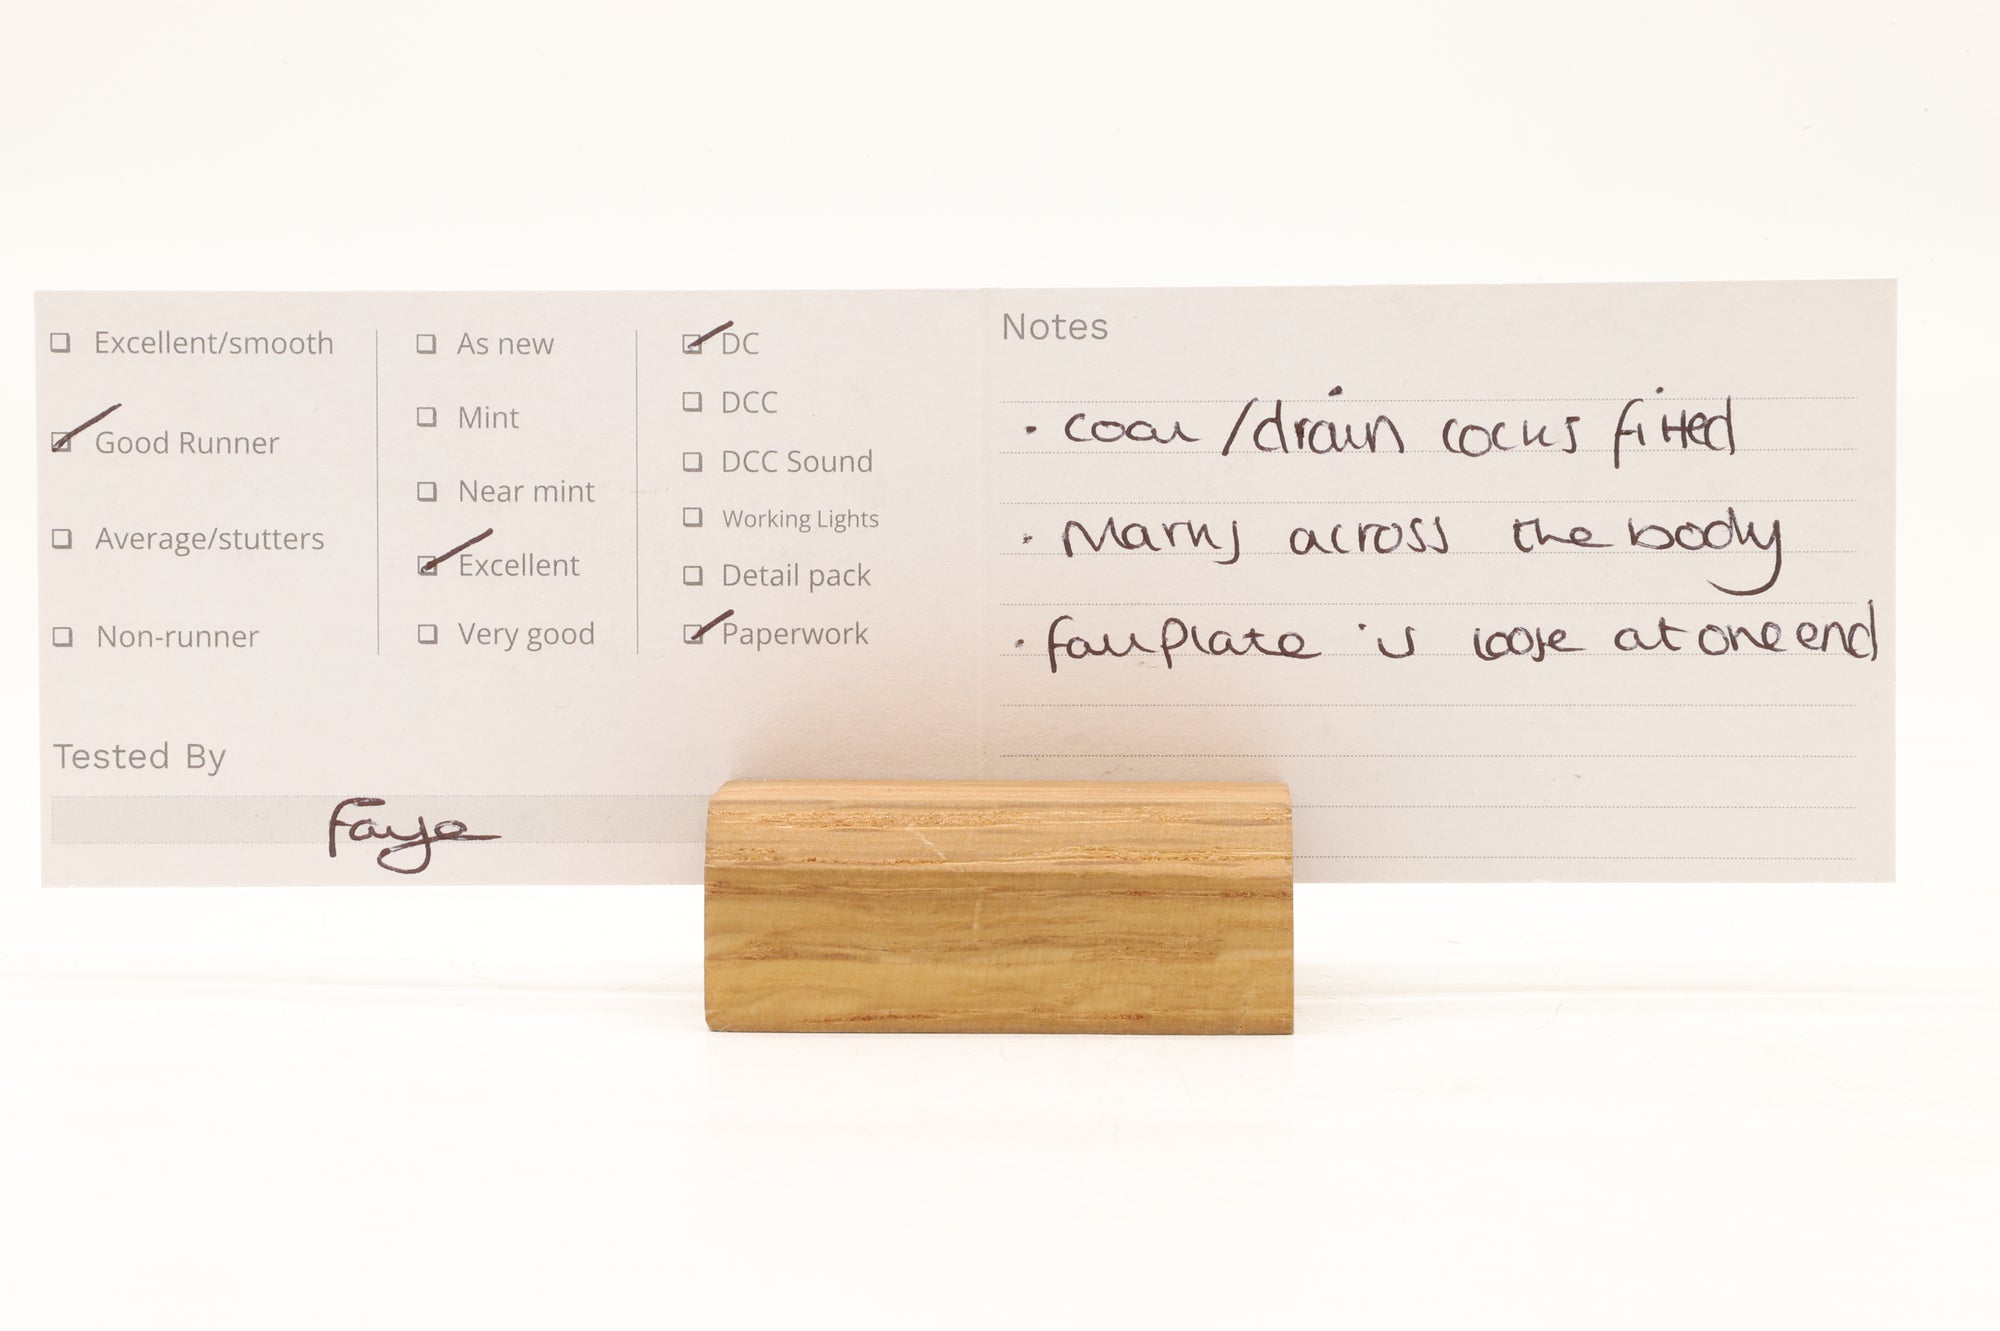 Excellent/smooth
Good Runner
Average/stutters
Non-runner
As new
Mint
Near mint
Excellent
Very good
DC
DCC
DCC Sound
Working Lights
Detail pack
Paperwork
Tested By
Faye
Notes
• coal /drain cocks fitted
• Marks across the body
• fallplate is loose at one end